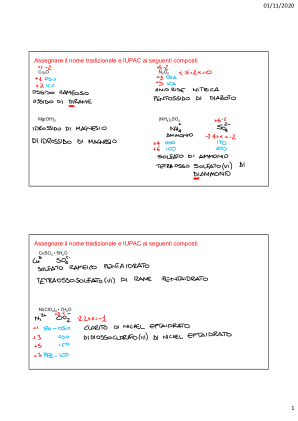 01/11/2020
Assegnare il nome tradizionale e IUPAC ai seguenti composti
+1 -2
Cu₂O
+1 OSO
+2 ICO
OSSIDO RAMEOSO
OSSIDO DI DIRAME
+5 -2
N₂O₅
+3 OSA
+5 ICA
ANIDRIDE NITRICA
PENTOSSIDO DI DIAZOTO
Mg(OH)₂
IDROSSIDO DI MAGNESIO
DIIDROSSIDO DI MAGNESIO
(NH₄)₂SO₄
NH₄⁺ SO₄²⁻
AMMONIO
+4 OSO
+6 ICO
ITO
ATO
SOLFATO DI AMMONIO
TETRAOSSO SOLFATO(VI) DI
DIAMMONIO
Assegnare il nome tradizionale e IUPAC ai seguenti composti
CuSO₄ • 5H₂O
SOLFATO RAMEICO PENTAIDRATO
TETRAOSSOSOLFATO(VI) DI RAME PENTAIDRATO
Ni(ClO₂)₂ • 7H₂O
+1 IPO-OSO
+3 OSO
+5 ICO
+7 PER-ICO
CLORITO DI NICHEL EPTAIDRATO
DIDIOSSOCLORATO(III) DI NICHEL EPTAIDRATO
1